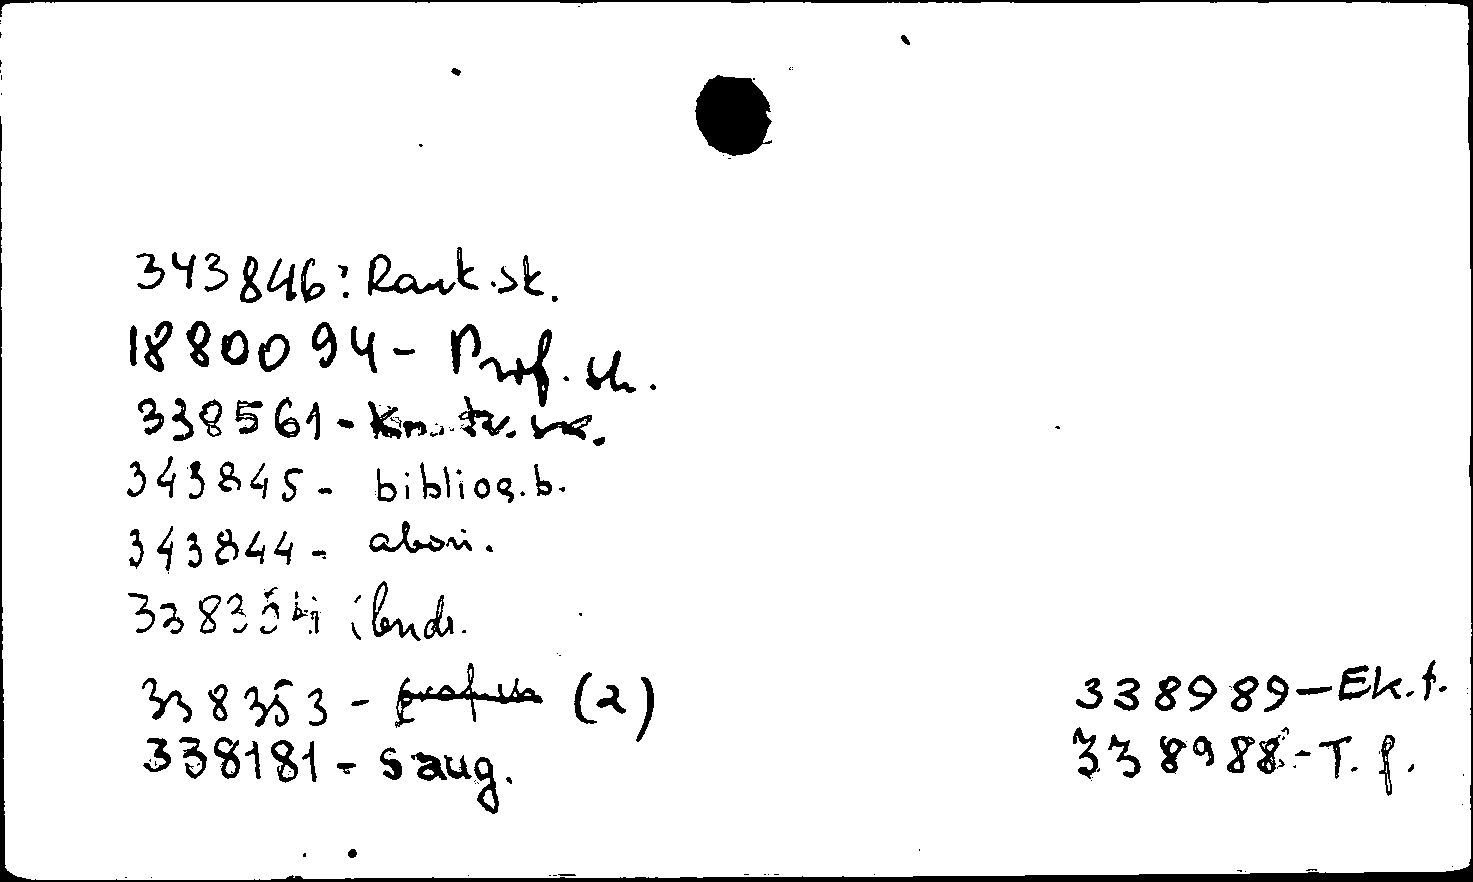 343846: Rank.sk.
1880094- Prof. sk.
338561-
343845- bibliog.b.
343844- abon.
338354 bendr.
338353- prof. sk (2)
338181- saug.
338989-Ek.f.
338988-T.f.